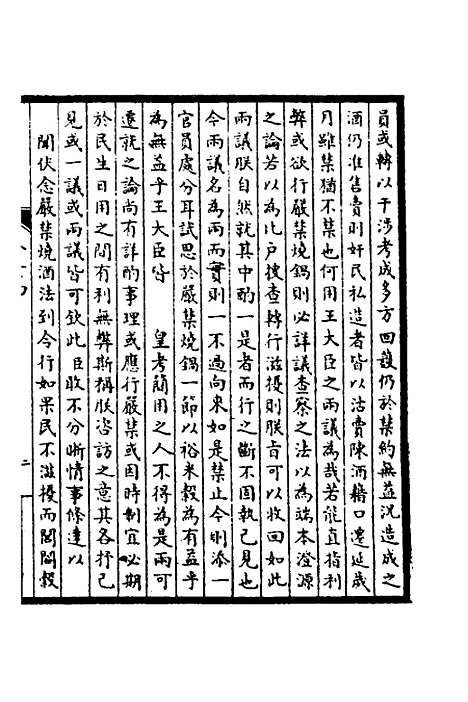 員或轉以干涉考成多方回護仍於禁約無益況造成之
酒仍准售賣則奸民私造者皆以沽賣陳酒藉口遷延歲
月雖禁猶不禁也何用王大臣之兩議為哉若能直指利
弊或欲行嚴禁燒鍋則必詳議查察之法以為端本澄源
之論若以為比戶搜查轉行滋擾則朕旨可以收回如此
兩議朕自然就其中酌一是者而行之斷不固執己見也
今兩議名為兩而實則一不過向來如是禁止今則添一
官員處分耳試思於嚴禁燒鍋一節以裕米穀為有益乎
為無益乎王大臣皆 皇考簡用之人不得為是兩可
遷就之論尚有詳酌事理或應行嚴禁或因時制宜必期
於民生日用之間有利無弊斯稱朕咨訪之意其各抒己
見或一議或兩議皆可欽此臣敢不分晰情事條達以
聞伏念嚴禁燒酒法到令行如果民不滋擾而閭閻穀